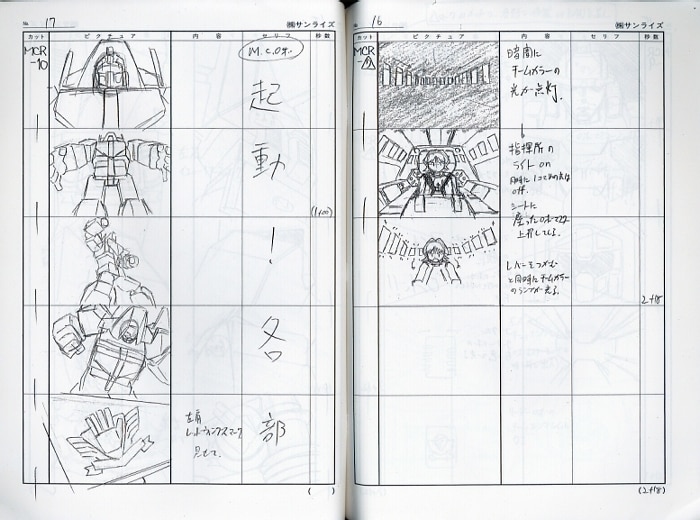 No. 17
㈱サンライズ
カット
ピクチュア
内容
セリフ
秒数
MCR
-10
M.C.O.
起
動
!
各
部
(1+00)
左肩
見せて。
(   )
No. 16
㈱サンライズ
カット
ピクチュア
内容
セリフ
秒数
MCR
-9
暗闇に
チームカラーの
光が点灯。
指揮所の
ライトon
off.
シートに
座ったロボで
上昇してくる。
レバーをつかむ
と同時にチームカラー
のランプが光る。
2+18
(2+18)